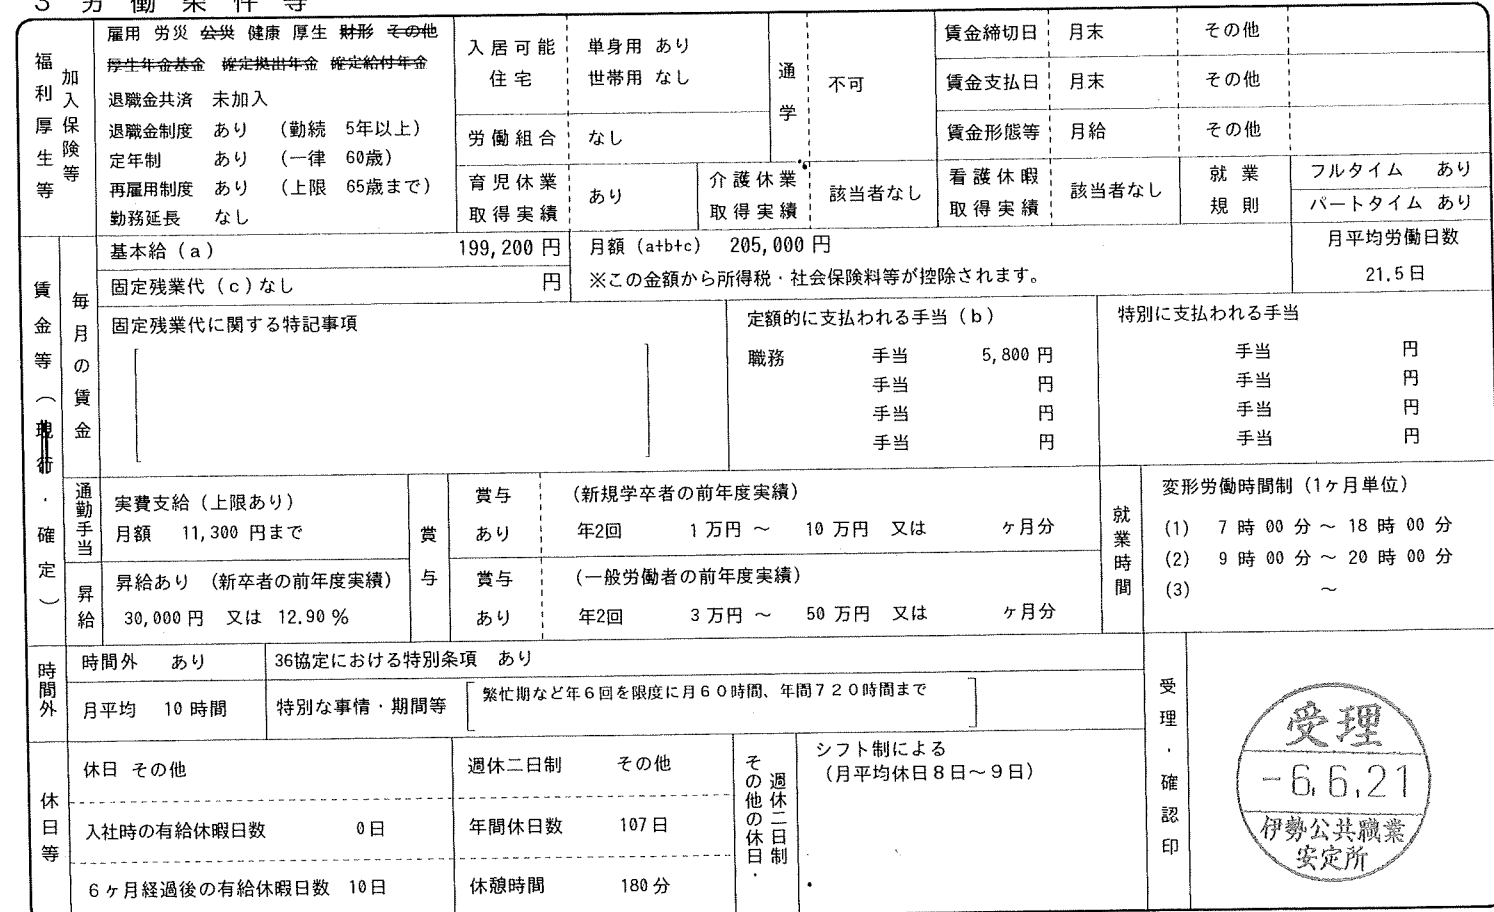 3 労働条件等
福利厚生等
加入保険等
雇用 労災 公災 健康 厚生 財形 その他
厚生年金基金 確定拠出年金 確定給付年金
退職金共済 未加入
退職金制度 あり (勤続 5年以上)
定年制 あり (一律 60歳)
再雇用制度 あり (上限 65歳まで)
勤務延長 なし
入居可能住宅
単身用 あり
世帯用 なし
通学
不可
労働組合 なし
育児休業取得実績 あり
介護休業取得実績 該当者なし
看護休暇取得実績 該当者なし
賃金締切日 月末 その他
賃金支払日 月末 その他
賃金形態等 月給 その他
就業規則
フルタイム あり
パートタイム あり
賃金等(現行・確定)
毎月の賃金
基本給(a) 199,200 円
固定残業代(c)なし 円
月額(a+b+c) 205,000 円
※この金額から所得税・社会保険料等が控除されます。
月平均労働日数
21.5日
固定残業代に関する特記事項
定額的に支払われる手当(b)
職務 手当 5,800 円
手当 円
手当 円
手当 円
特別に支払われる手当
手当 円
手当 円
手当 円
手当 円
通勤手当
実費支給(上限あり)
月額 11,300 円まで
昇給
昇給あり (新卒者の前年度実績)
30,000円 又は 12.90 %
賞与
賞与 あり
(新規学卒者の前年度実績)
年2回 1 万円 ~ 10 万円 又は ヶ月分
賞与 あり
(一般労働者の前年度実績)
年2回 3 万円 ~ 50 万円 又は ヶ月分
就業時間
変形労働時間制(1ヶ月単位)
(1) 7 時 00 分 ~ 18 時 00 分
(2) 9 時 00 分 ~ 20 時 00 分
(3) ~
時間外
時間外 あり
月平均 10 時間
36協定における特別条項 あり
特別な事情・期間等
繁忙期など年6回を限度に月60時間、年間720時間まで
休日等
休日 その他
入社時の有給休暇日数 0日
6ヶ月経過後の有給休暇日数 10日
週休二日制 その他
年間休日数 107日
休憩時間 180分
週休二日制・その他の休日
シフト制による
(月平均休日8日~9日)
受理・確認印
受理
-6.6.21
伊勢公共職業
安定所